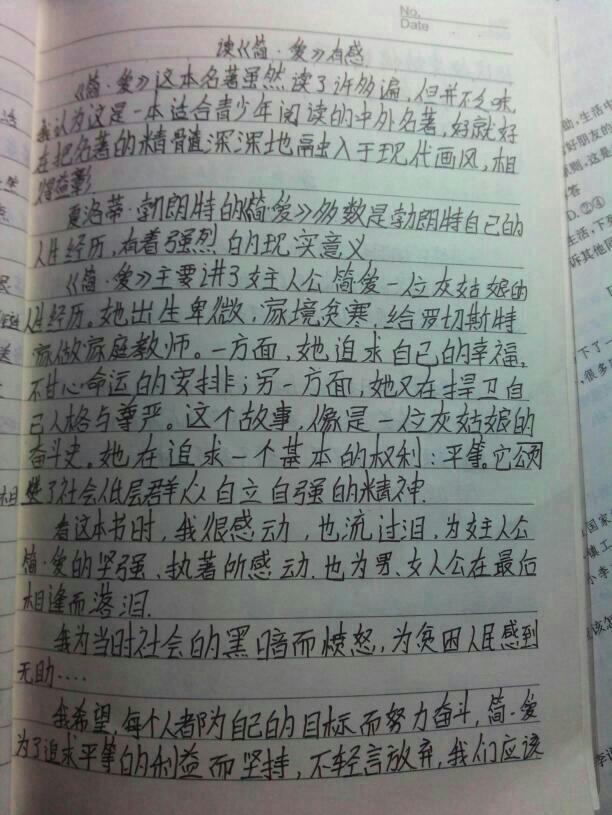 No.
Date
读《简·爱》有感
《简·爱》这本名著虽然读了许多遍，但并不乏味，
我认为这是一本适合青少年阅读的中外名著，好就好
在把名著的精髓深深地融入于现代画风，相
得益彰
夏洛蒂·勃朗特的《简·爱》多数是勃朗特自己的
人生经历，有着强烈的现实意义
《简·爱》主要讲了女主人公简爱一位灰姑娘的
人生经历。她出生卑微，家境贫寒，给罗切斯特
家做家庭教师。一方面，她追求自己的幸福，
不甘心命运的安排；另一方面，她又在捍卫自
己人格与尊严。这个故事，像是一位灰姑娘的
奋斗史。她在追求一个基本的权利：平等。它
了社会低层群众自立自强的精神.
看这本书时，我很感动，也流过泪，为女主人公
简·爱的坚强、执著所感动.也为男、女人公在最后
相逢而落泪.
我为当时社会的黑暗而愤怒，为贫困人民感到
无助....
我希望，每个人都为自己的目标而努力奋斗，简·爱
为了追求平等的利益而坚持，不轻言放弃，我们应该
助，生活
好朋友的
原则·这是
答
D. ②④
生活，下
诉其他
下了一
，很多
国家
模工
小李
该怎